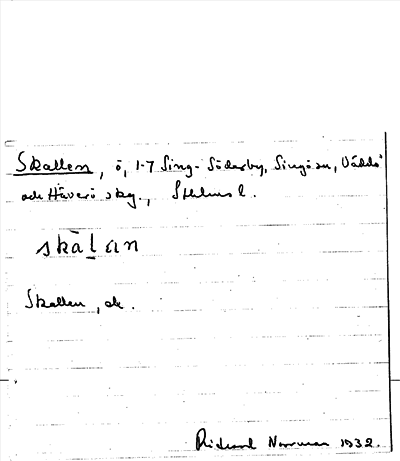 Skallen, ö, 1-7 Sing-Söderby, Singö sn, Väddö
och Häverö skg., Sthlms l.
skàḷan
Skallen, ek.
Rickard Norrman 1932.